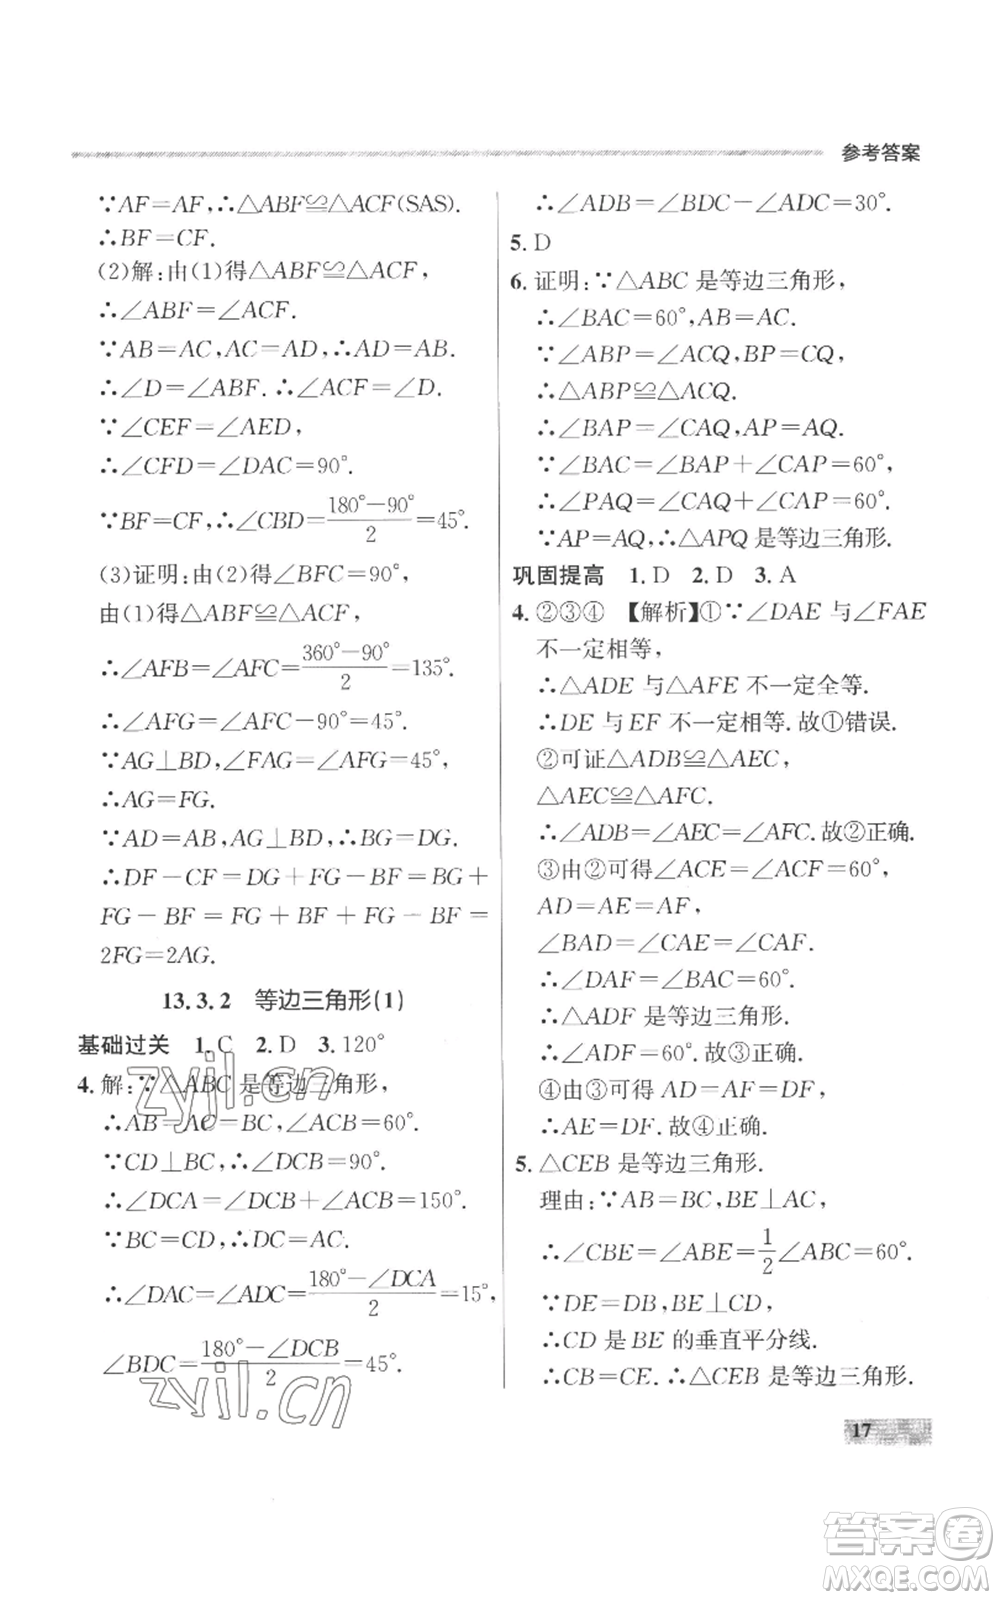 参考答案
∵AF=AF,∴△ABF≌△ACF(SAS).
∴BF=CF.
(2)解:由(1)得△ABF≌△ACF,
∴∠ABF=∠ACF.
∵AB=AC,AC=AD,∴AD=AB.
∴∠D=∠ABF.∴∠ACF=∠D.
∵∠CEF=∠AED,
∴∠CFD=∠DAC=90°.
∵BF=CF,∴∠CBD=(180°-90°)/2=45°.
(3)证明:由(2)得∠BFC=90°,
由(1)得△ABF≌△ACF,
∴∠AFB=∠AFC=(360°-90°)/2=135°.
∴∠AFG=∠AFC-90°=45°.
∵AG⊥BD,∠FAG=∠AFG=45°,
∴AG=FG.
∵AD=AB,AG⊥BD,∴BG=DG.
∴DF-CF=DG+FG-BF=BG+
FG-BF=FG+BF+FG-BF=
2FG=2AG.
13.3.2 等边三角形(1)
基础过关 1.C 2.D 3.120°
4.解:∵△ABC是等边三角形,
∴AB=AC=BC,∠ACB=60°.
∵CD⊥BC,∴∠DCB=90°.
∴∠DCA=∠DCB+∠ACB=150°.
∵BC=CD,∴DC=AC.
∴∠DAC=∠ADC=(180°-∠DCA)/2=15°,
∠BDC=(180°-∠DCB)/2=45°.
∴∠ADB=∠BDC-∠ADC=30°.
5.D
6.证明:∵△ABC是等边三角形,
∴∠BAC=60°,AB=AC.
∵∠ABP=∠ACQ,BP=CQ,
∴△ABP≌△ACQ.
∴∠BAP=∠CAQ,AP=AQ.
∵∠BAC=∠BAP+∠CAP=60°,
∴∠PAQ=∠CAQ+∠CAP=60°.
∵AP=AQ,∴△APQ是等边三角形.
巩固提高 1.D 2.D 3.A
4.②③④ 【解析】①∵∠DAE与∠FAE
不一定相等,
∴△ADE与△AFE不一定全等.
∴DE与EF不一定相等.故①错误.
②可证△ADB≌△AEC,
△AEC≌△AFC.
∴∠ADB=∠AEC=∠AFC.故②正确.
③由②可得∠ACE=∠ACF=60°,
AD=AE=AF,
∠BAD=∠CAE=∠CAF.
∴∠DAF=∠BAC=60°.
∴△ADF是等边三角形.
∴∠ADF=60°.故③正确.
④由③可得AD=AF=DF,
∴AE=DF.故④正确.
5.△CEB是等边三角形.
理由:∵AB=BC,BE⊥AC,
∴∠CBE=∠ABE=1/2∠ABC=60°.
∵DE=DB,BE⊥CD,
∴CD是BE的垂直平分线.
∴CB=CE.∴△CEB是等边三角形.
17
zyjl.cn
zyjl.cn
答案卷
MXQE.COM